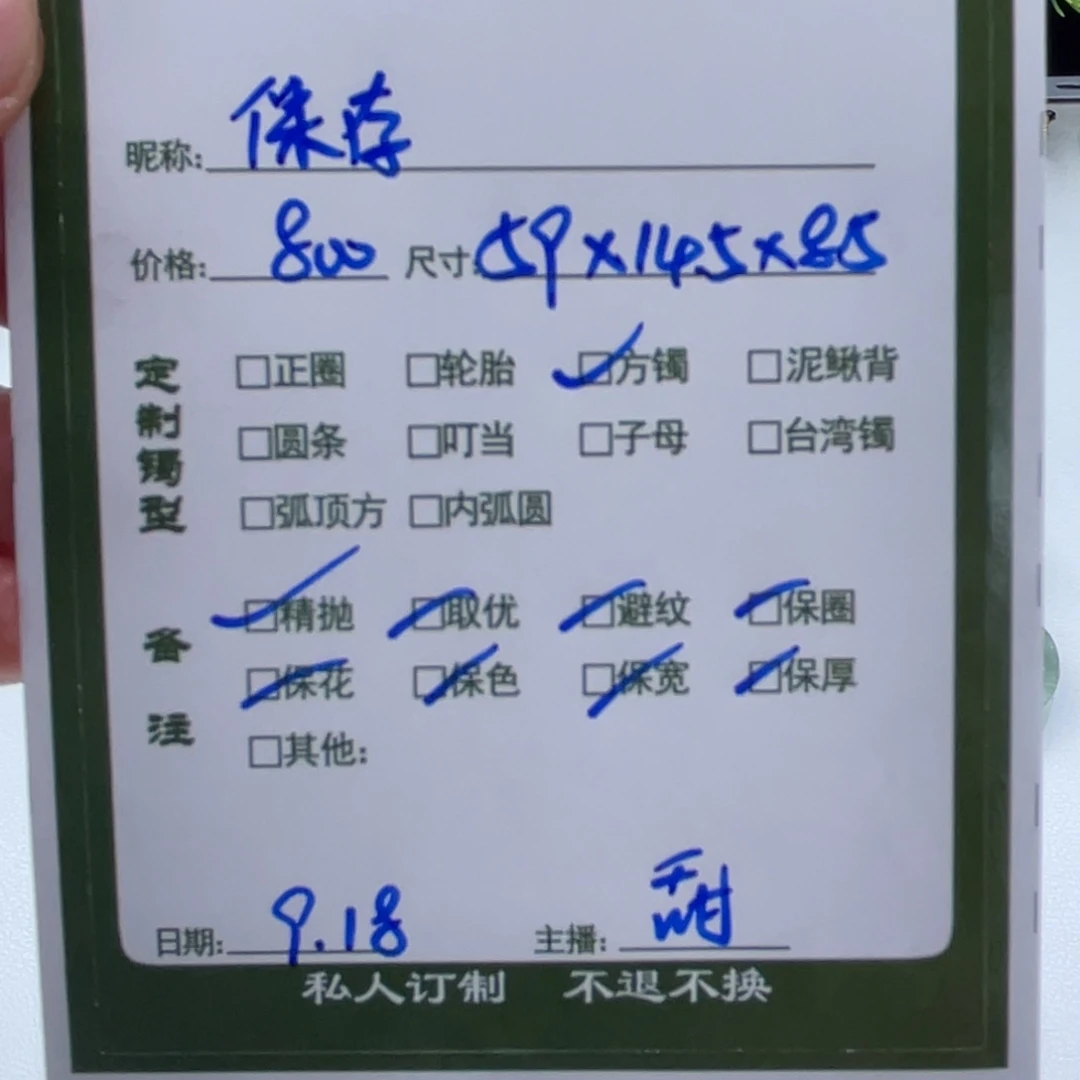 昵称: 保存
价格: 800 尺寸: 59×145×85
定制镯型
□正圈 □轮胎 ☑方镯 □泥鳅背
□圆条 □叮当 □子母 □台湾镯
□弧顶方 □内弧圆
备注
☑精抛 ☑取优 ☑避纹 ☑保圈
☑保花 ☑保色 ☑保宽 ☑保厚
□其他:
日期: 9.18 主播: 甜
私人订制 不退不换